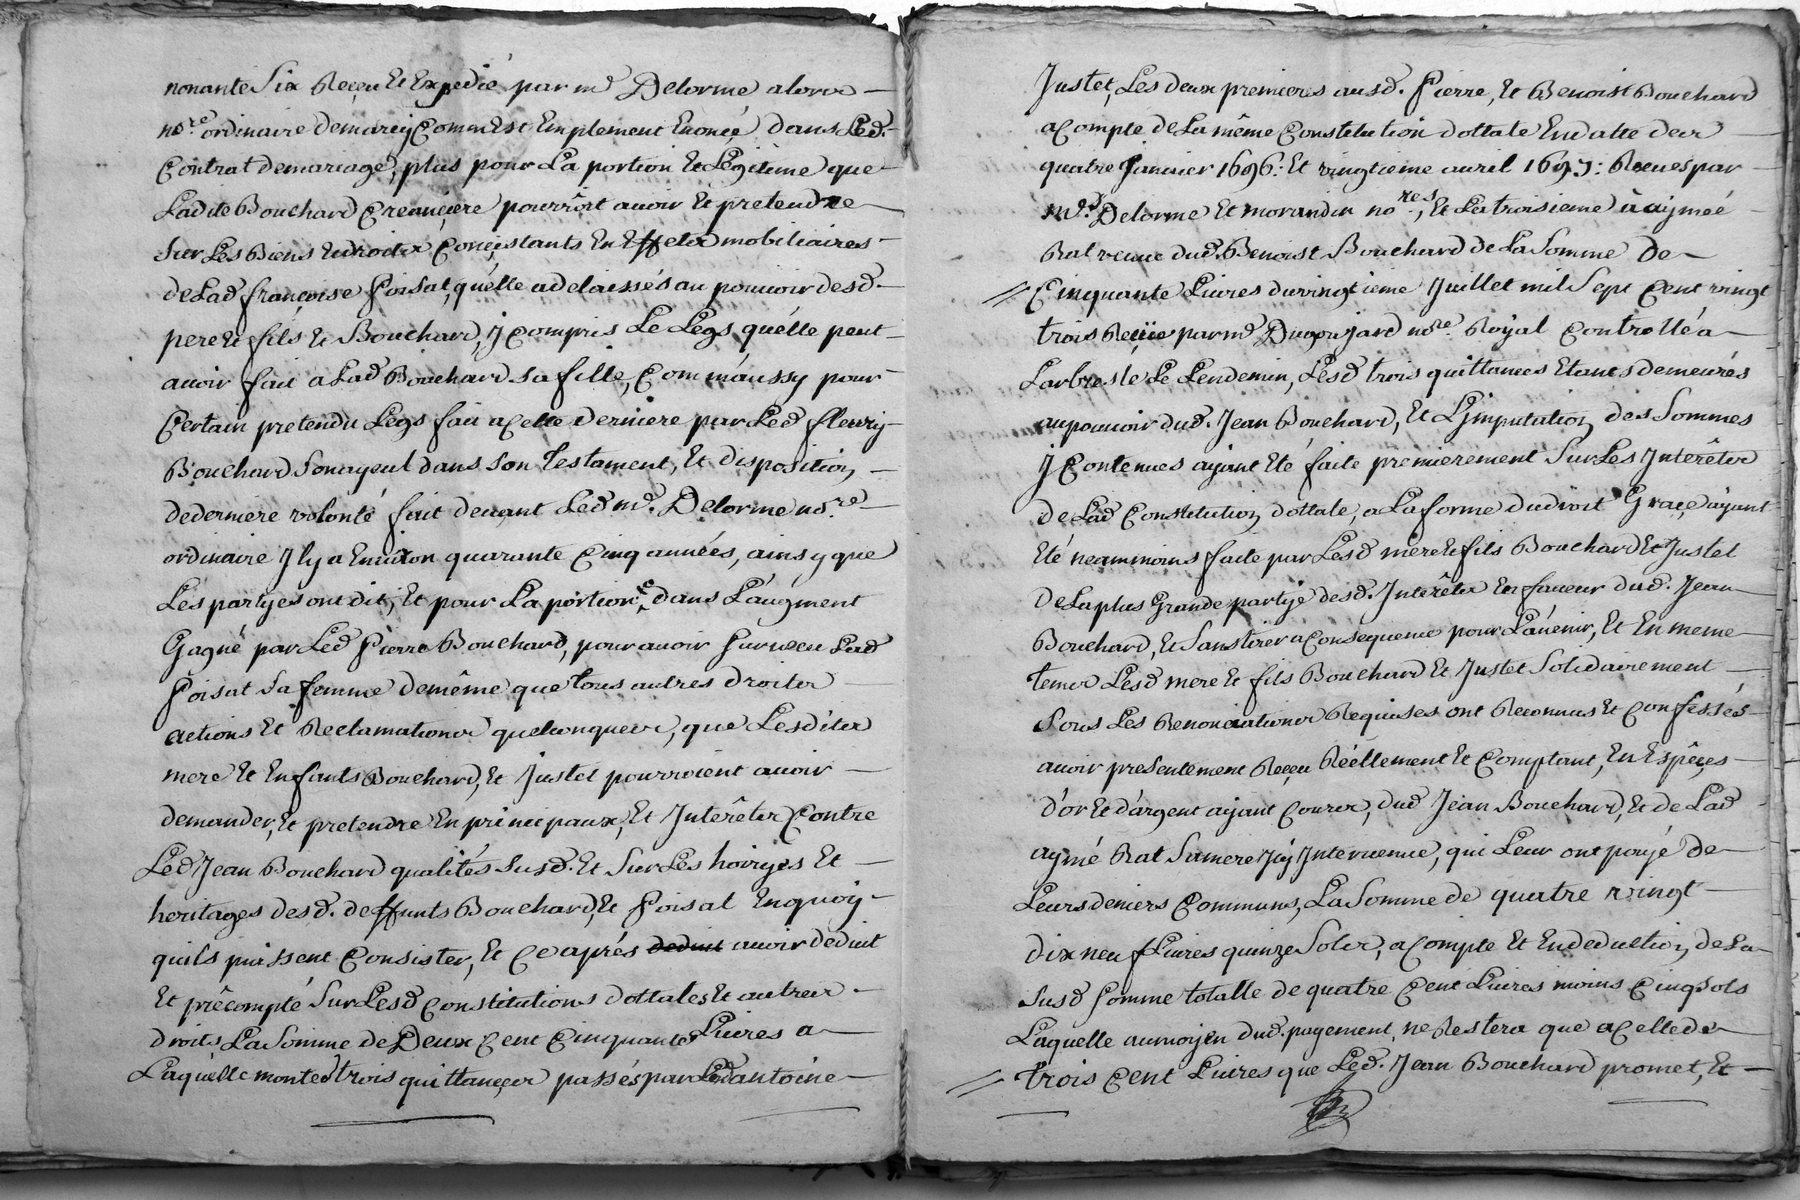 nonante Six Reçeu Et Expedié par me Delorme alors
nore ordinaire demarcy Comm Est Emplement Enoncé dans Led.
Contrat demariage, plus pour La portion Et Légitime que
Ladite Bouchard Creanciere pourrôit avoir Et pretendre
Sur Les Biens Endroits Concistants En Effets mobiliaires
de Lad françoise Poisat, quélle a delaissés au pouvoir desd.
pere Et fils Et Bouchard, y Compris Le Legs quélle peut
avoir fait a Lad Bouchard Sa fille, Comm'aussy pour
Certain pretendu Legs fait a Cette derniere par Led fleury
Bouchard Sonayeul dans Son Testament, Et disposition,
dederniere volonté fait devant Led me. Delorme nore
ordinaire Il y a Environ quarante Cinq années, ainsy que
Les partyes ont dit, Et pour La portion dans L'augment
Gagné par Led Pierre Bouchard, pour avoir Survecu Lad
Poisat Sa femme demême que tous autres droits
actions Et Reclamations quelconques, que Lesdits
mere Et Enfants Bouchard, Et Justet pourroient avoir
demander, Et pretendre En principaux, Et Interêts Contre
Led Jean Bouchard qualités Susd. Et Sur Les hoiryes Et
heritages desd. deffunts Bouchard, Et Poisat Enquoy
quils puissent Consister, Et Ce aprés deduit avoir deduit
Et précompté Sur Lesd Constitutions dottales Et autres
droits La Somme de Deux Cent Cinquante Livres a
Laquelle montet trois quittances passés par Led antoine
Justet, Les deux premieres ausd. Pierre, Et Benoist Bouchard
a Compte de La même Constitution dottale En datte des
quatre Janvier 1696: Et vingtieme avril 1697: Reeues par
mes Delorme Et morandin nores, Et La troisieme à aymeé
Rat veuve dud. Benoist Bouchard de La Somme de
Cinquante Livres du vingtieme Juillet mil Sept Cent vingt
trois Reçüe par me Dugoujard nore Royal Controllé a
Larbresle Le Lendemin, Lesd trois quittances Etants demeurés
aupouvoir dud. Jean Bouchard, Et L'jmputation des Sommes
y Contenues ayant Eté faite premierement Sur Les Interêts
de Lad Constitution dottale, a La forme dudroit Grace ayant
Eté neammoins faite par Lesd mere Et fils Bouchard Et Justet
de La plus Grande partye desd. Interêts En faveur dud. Jean
Bouchard, Et Sans tirer a Consequence pour L'avenir, Et En meme
tems Lesd mere Et fils Bouchard Et Justet Solidairement
Sous Les Renonciations Requises ont Reconnus Et Confessés
avoir presentement Reçeu Réellement Et Comptant, En Espêces
d'or Et d'argent ayant Cours, dud Jean Bouchard, Et de Lad
aymé Rat Samere Icy Intervenue, qui Leur ont payé de
Leurs deniers Communs, La Somme de quatre vingt
dix neuf Livres quinze Sols, a Compte Et En deduction, de La
Susd Somme totalle de quatre Cent Livres moins Cinq Sols
Laquelle au moyen dud. payement, ne Restera que a Celle de
trois Cent Livres que Led. Jean Bouchard promet, Et